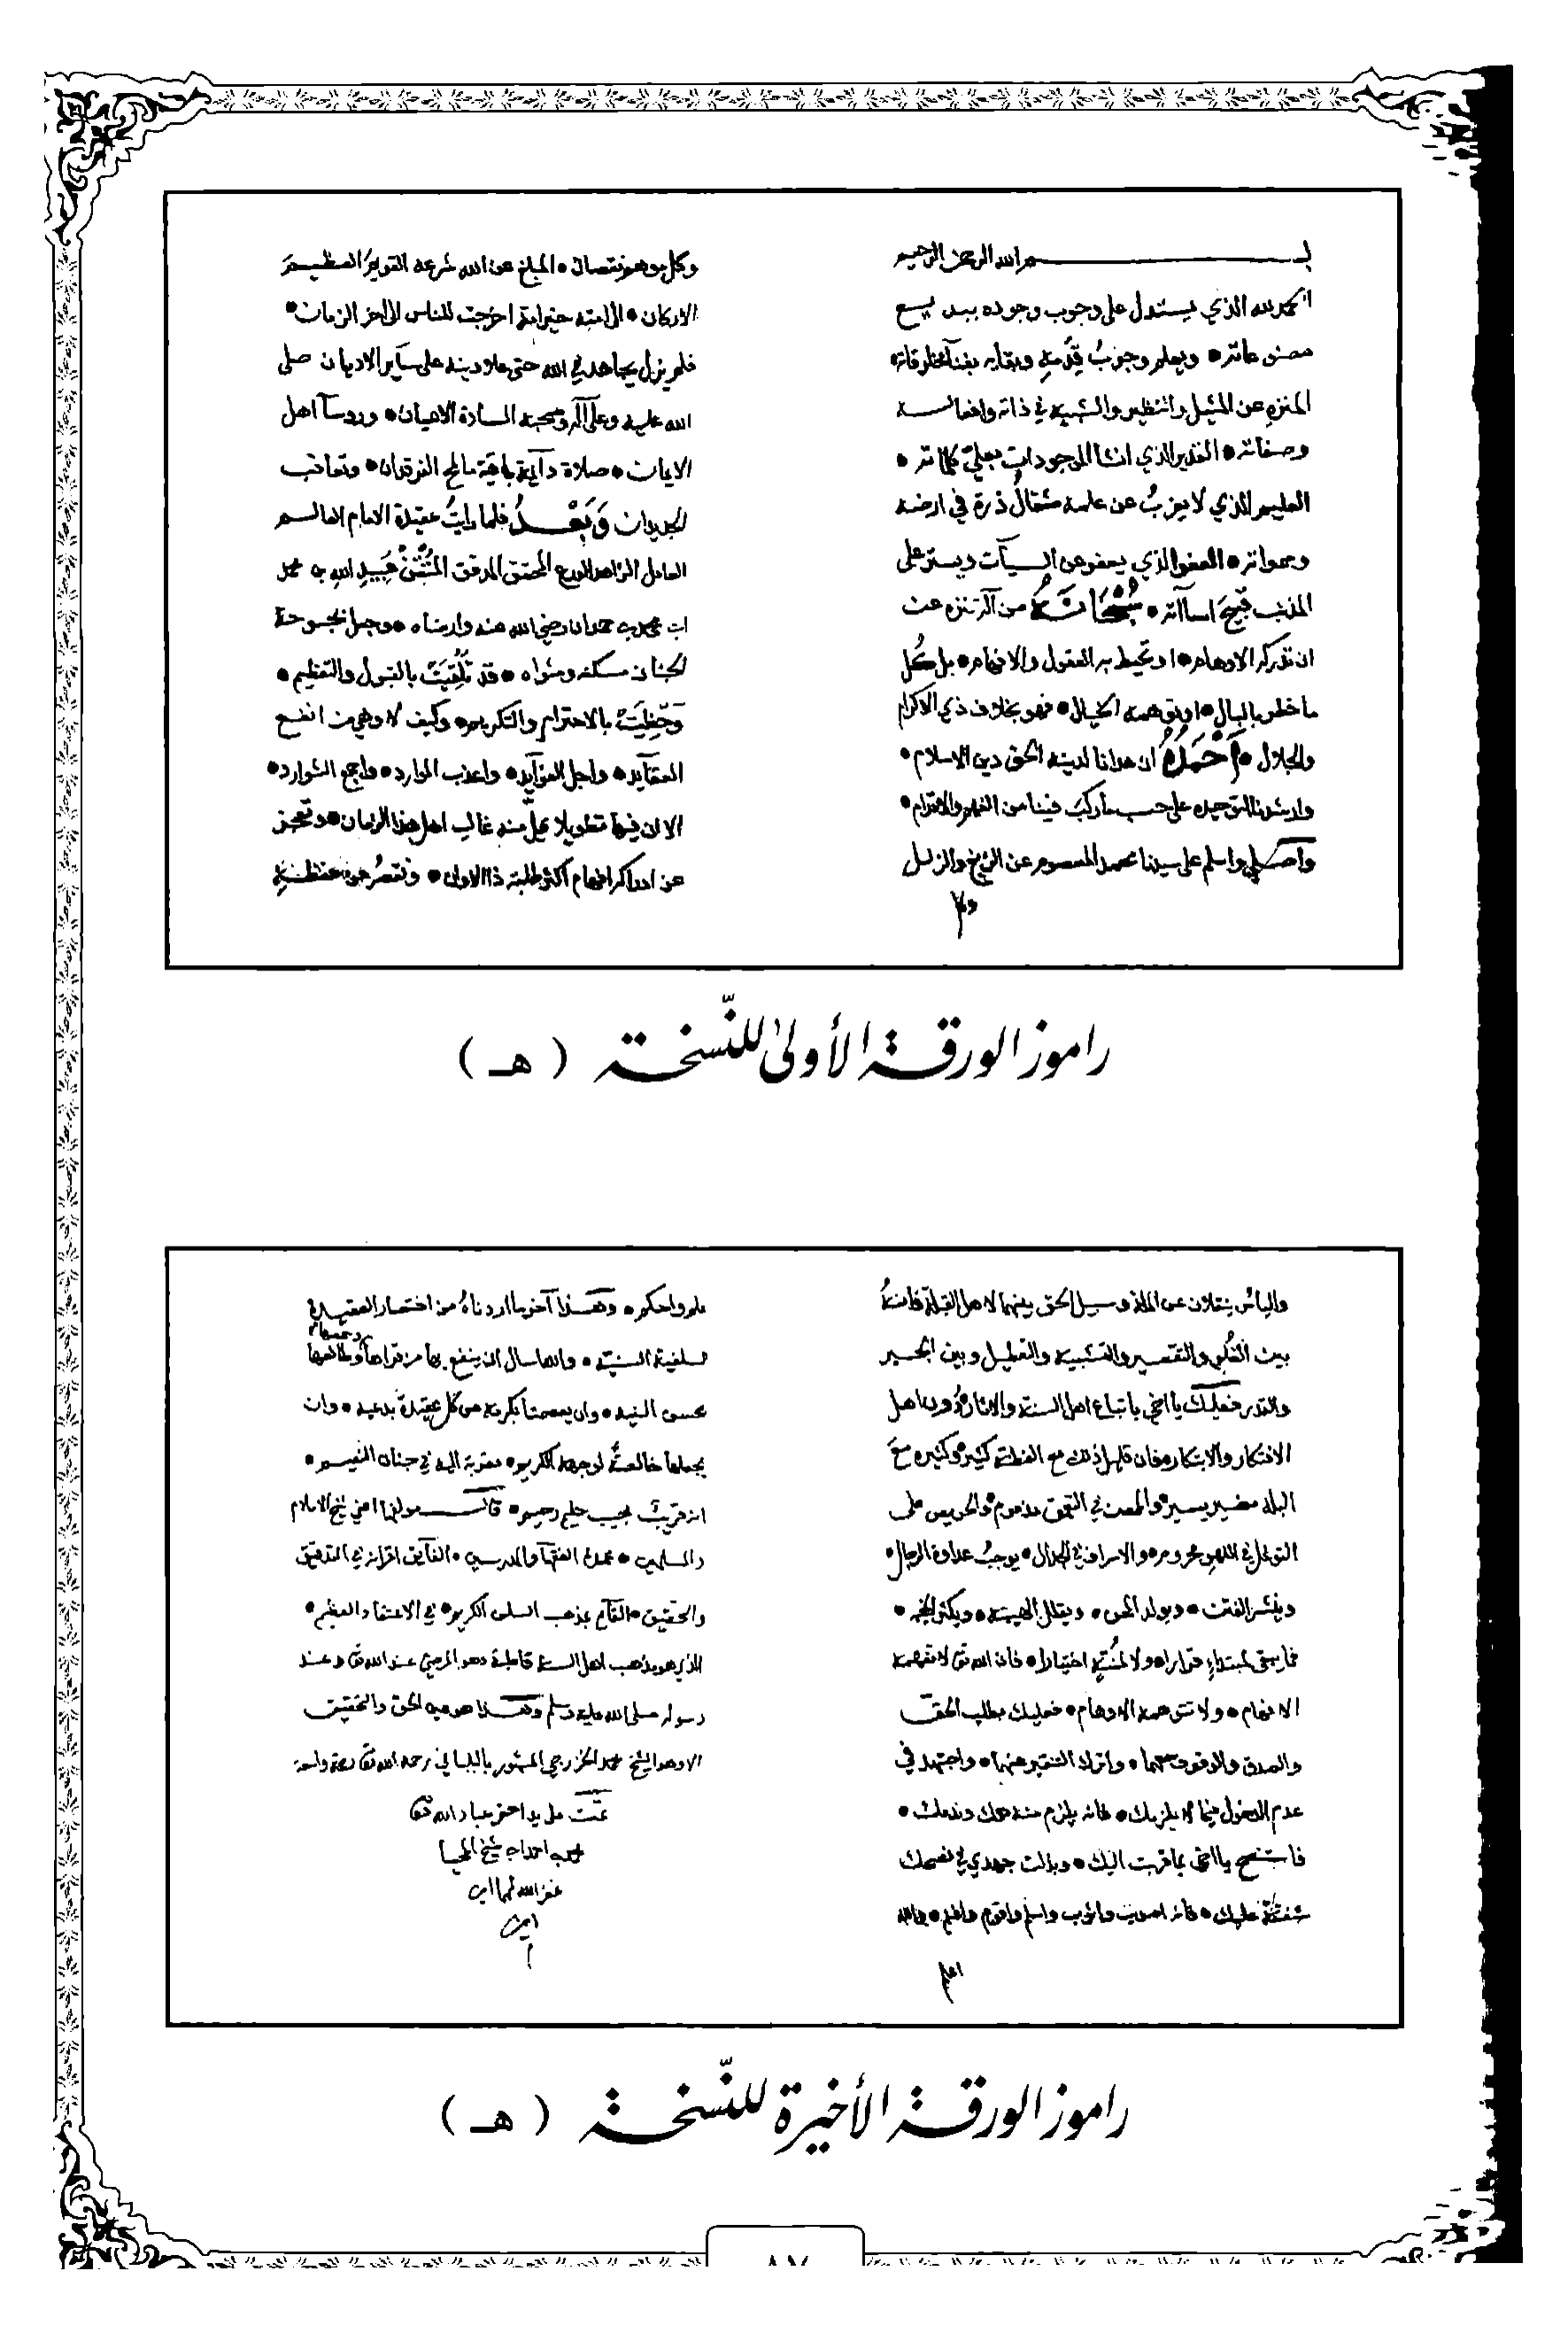 بسم الله الرحمن الرحيم
الحمد لله الذي يستدل على وجوب وجوده ببديع
مصنوعاته ويعلم وجوبُ قِدَمِهِ وبقائه بفنآ مخلوقاته
المنزه عن المثيل والنظير والشبيه في ذاته وافعاله
وصفاته القدير الذي انشا الموجودات بعليّ كلماته
العليم الذي لا يعزبُ عن علمه مثقالُ ذرة في ارضه
وسمواته العفو الذي يعفو عن السيآت ويستر على
المذنب قبيحَ اسآاته سُبْحَانَهُ من آله تنزه عن
ان تدركه الاوهام او تحيط به العقول والافهام بل كُل
ما خطر بالبال او توهمه الخيال فهو بخلاف ذي الاكرام
والجلال أَحْمَدُهُ ان هدانا لدينه الحق دين الاسلام
وارشدنا لتوحيده على حسب ما ركبَ فينا من الفهم والافهام
واصلي واسلم على سيدنا محمد المعصوم عن الزيغ والزلل
وكل
وكل وهم نقصان المبلغ عن الله شرعه القويمَ العظيمَ
الاركان الى امته خير امة اخرجت للناس الى اخر الزمان
فلم يزل يجاهد في الله حتى علا دينه على سآير الاديان صلى
الله عليه وعلى آله وصحبه السادة الاعيان وروسآ اهل
الايمان صلاة دآيمة باقية ما لاح الفرقدان وتعاقب
الجديدان وَبَعْدُ فلما رايتُ عقيدة الامام العالم
العامل الزاهد الورع المحقق المدقق المُتْقن عُبَيدِ الله بن محمد
ابن محمد بن حمدان رضي الله عنه وارضاه وجعل بحبوحة
الجنان مسكنه ومثواه قد تُلُقِّيَتْ بالقبول والتعظيم
وَحَظِيَتْ بالاحترام والتكريم وكيف لا وهي من انفع
العقآيد واجل الفوآيد واعذب الموارد واجمع الشوارد
الا ان فيها تطويلا يملّ منه غالب اهل هذا الزمان وتعجز
عن ادراكه افهام اكثر طلبة ذا الاوان وتقصُر عن حفظه
راموز الورقة الأولىٰ للنّسخة ( هـ )
والياس ينقلان عن الملة وسبيل الحق بينهما لاهل القبلة فانهُ
بين الغُلو والتقصير والتشبيه والتعطيل وبين الجبر
والقدر فعليك يا اخي باتباع اهل السنة والاثار دُون اهل
الافتكار والابتكار فان قليل ذلك مع الفطنة كثير وكثيره معَ
البله مضير يسير والمعن في التعمق مذموم والحريص على
التوغل في اللهو محروم والاسراف في الجدال يوجبُ عداوة الرجال
وينشر الفتن ويولد المحن ويقلل الهيبة ويكثر الخجه
فما يبقى لمبتداءٍ قرارا ولا لمُنْتَهٍ اختيارا فان الله تعا لا تفهمه
الافهام ولا تتوهمه الاوهام فعليك بطلب الحق
والصدق والوقوف معهما واترك التنقير عنهما واجتهد في
عدم الدخول فيما لا يلزمك فانه يلزم منه همك وندمك
فانتصح يا اخي بما قربت اليك وبذلت جهدي في نصحك
شفقة عليك فانه اصوب واثوب واسلم واقوم والله
اعلم
علم واحكم وهذا آخر ما اردناهُ من اختصار العقيدة
السلفية السنية والله اسال ان ينفع بها من قراها او طالعها
وسمعها
بحسن النية وان يعصمنا بكرمه من كل عقيدة بدعية وان
يجعلها خالصةً لوجهه الكريم مقربة اليه في جنات النعيم
انه قريبٌ مجيب حليم رحيم قال مولفها اعني شيخ الاسلام
والمسلمين عمدة الفقهآ والمدرسين الفآيق اقرانه في التدقيق
والتحقيق القآيم بمذهب السلف الكريم في الاعتقاد العظيم
الذي هو مذهب اهل السنة قاطبة وهو المرضي عند الله تعا وعند
رسوله صلى الله عليه وسلم وهذا هو عين الحق والتحقيق
الا وهو الشيخ محمد الخزرجي المشهور بالبلباني رحمه الله تعا رحمة واسعة
تمّت على يد احقر عباد الله تعا
محمد بن احمد ابن شيخ المحيا
غفر الله لهما امين
امين
راموز الورقة الأخيرة للنّسخة ( هـ )
٨٧